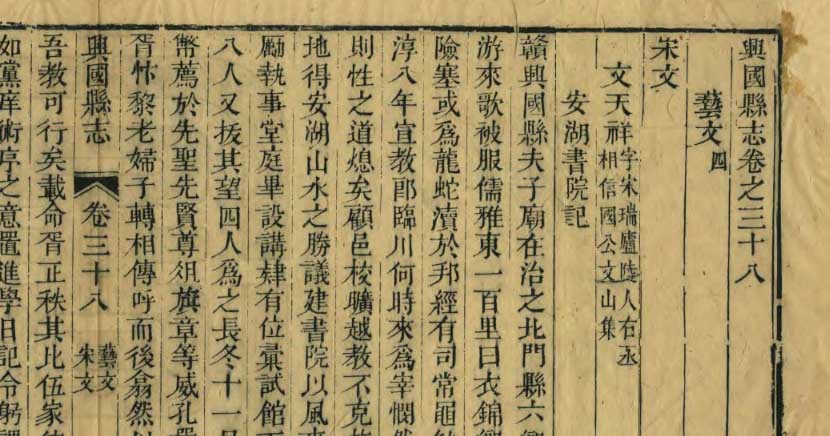 興國縣志卷之三十八
藝文四
宋文
文天祥字宋瑞廬陵人右丞相信國公文山集
安湖書院記
贛興國縣夫子廟在治之北門縣六鄉
游來歌被服儒雅東一百里曰衣錦鄉
險塞或爲龍蛇瀆於邦經有司常
淳八年宣教郎臨川何時來爲宰憫然
則性之道熄矣顧邑校曠越教不克
地得安湖山水之勝議建書院以風來
勵執事堂庭畢設講肄有位彙試館下
八人又拔其望四人爲之長冬十一月
幣薦於先聖先賢尊俎旗章等威孔嚴
胥忭黎老婦子轉相傳呼而後翕然以
興國縣志 卷三十八 藝文 宋文
吾教可行矣載命胥正秩其比伍家
如黨庠術序之意置進學日記令躬課